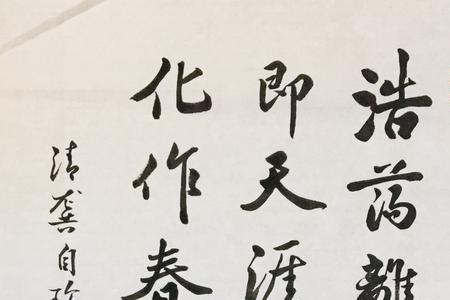 浩荡離
即天涯
化作春
清龔自珍